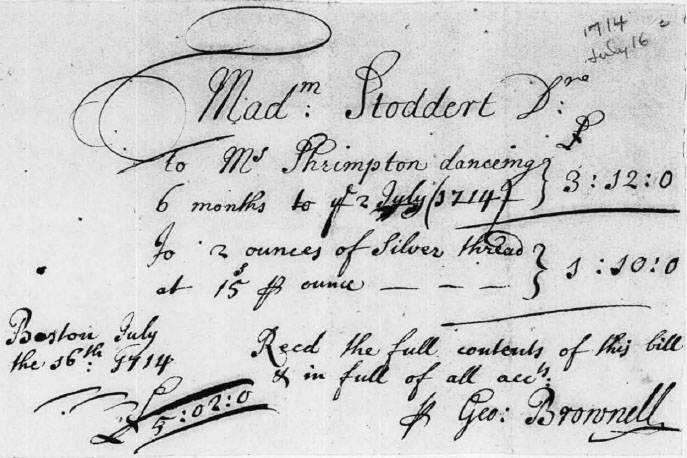 1714
July 16
Madm: Stoddert Dre:
£
to Ms Shrimpton danceing
6 months to ye 2 July (1714) } 3:12:0
To 2 ounces of Silver thread
at 15s ⅌ ounce — — — } 1:10:0
Boston July
the 16th: 1714
£
5:02:0
Recd the full contents of this bill
& in full of all accts:
⅌ Geo: Brownell